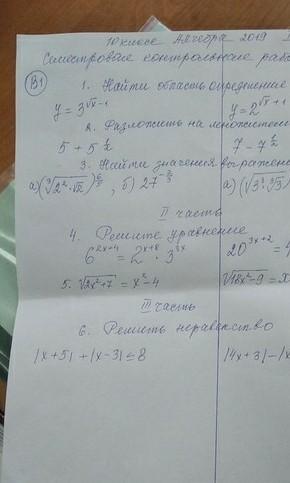 10 класс Алгебра 2019
Семестровые контрольные рабо
В1
1. Найти область определение
y = 3^{√x-1} y = 2^{√x+1}
2. Разложить на множители
5 + 5^{1/2} 7 - 7^{1/2}
3. Найти значения выражени
а) , б) 27^{-2/3} а)
II часть
4. Решите уравнение
6^{2x+4} = 2^{x+8} · 3^{3x} 20^{3x+2} =
5. √2x²+7 = x²-4
III часть
6. Решить неравенство
|x+5| + |x-3| ≤ 8 |4x+3| - |x